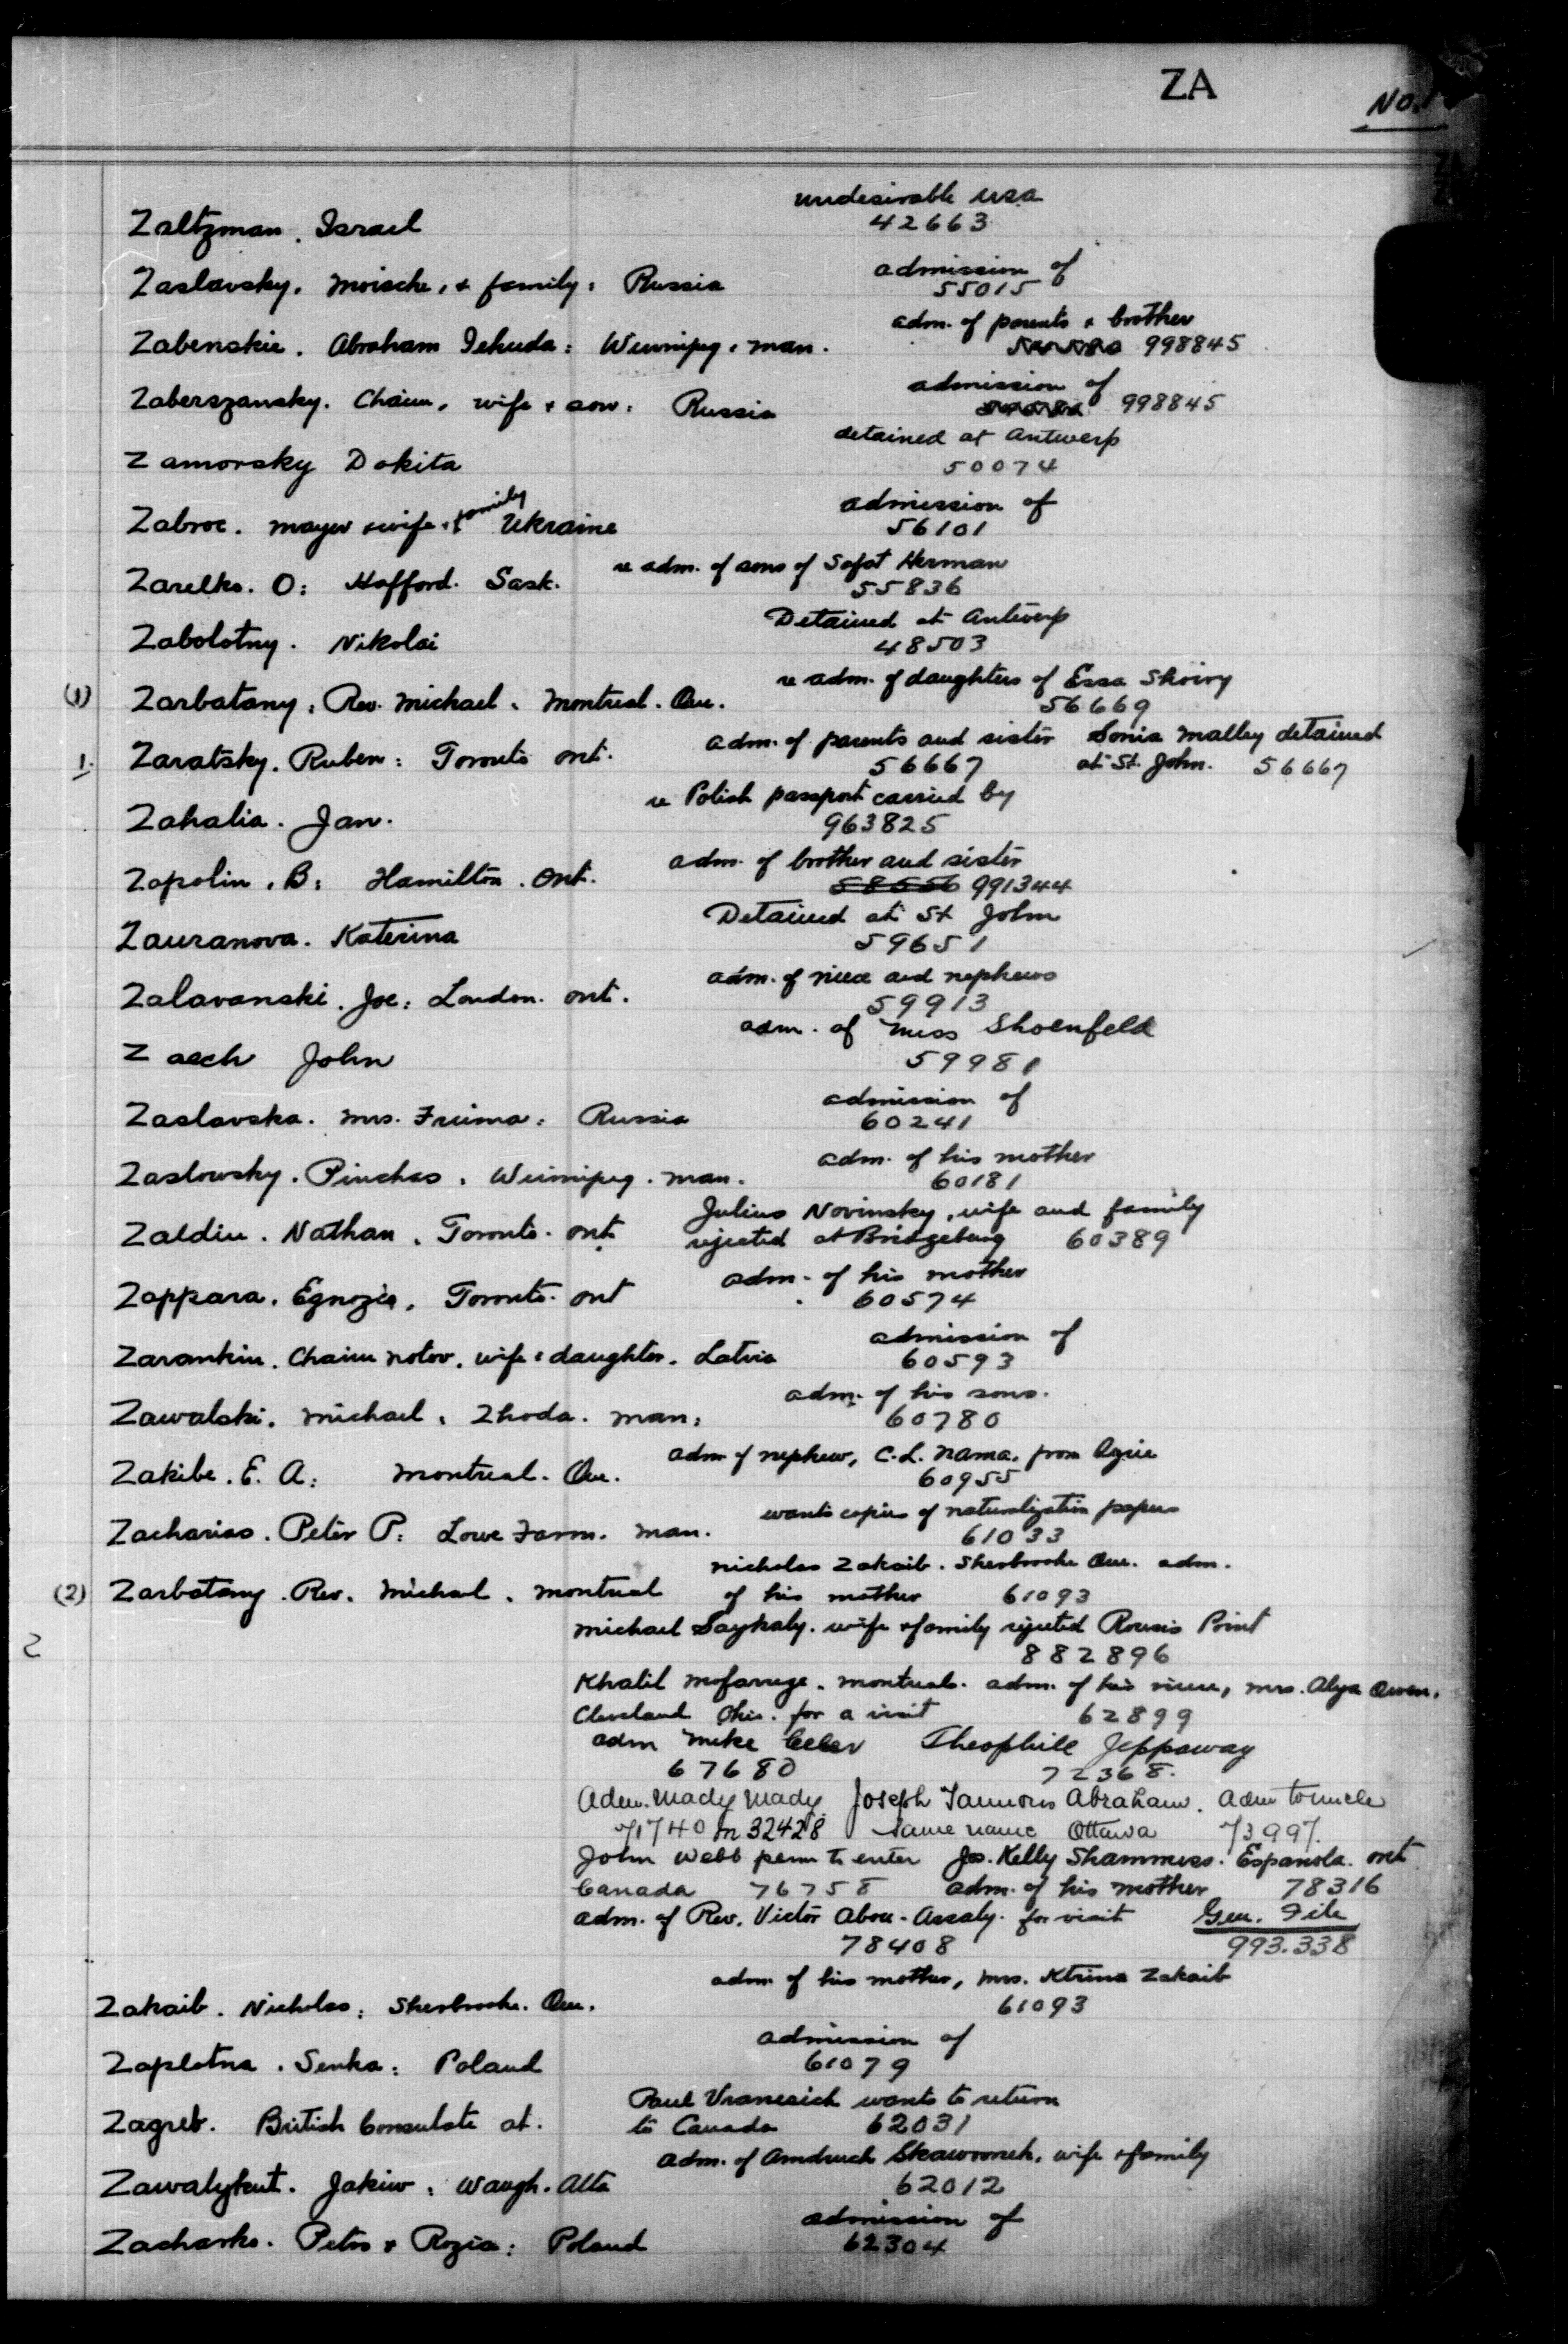 ZA
No.
undesirable USA
Zaltzman. Israel 42663
admission of
Zaslavsky. Moische, & family: Russia 55015
adm. of parents & brother
Zabenskie. Abraham Jehuda: Winnipeg. Man. 998845
admission of
Zaberszansky. Chaim, wife & son: Russia 998845
detained at Antwerp
Zamorsky Dokita 50074
admission of
family
Zabroc. Mayer & wife & Ukraine 56101
re adm. of sons of Safat Herman
Zarelko. O: Hafford. Sask. 55836
Detained at Antwerp
Zabolotny. Nikolai 48503
re adm. of daughters of Essa Shoiry
(1) Zarbatany: Rev. Michael. Montreal. Que. 56669
adm. of parents and sister Sonia Malley detained
1. Zaratsky. Ruben: Toronto Ont. 56667 at St. John. 56667
re Polish passport carried by
Zahalia. Jan. 963825
adm. of brother and sister
Zapolin. B: Hamilton. Ont. 58556 991344
Detained at St John
Zauranova. Katerina 59651
adm. of niece and nephews
Zalavanski. Joe: London. Ont. 59913
adm. of Miss Shoenfeld
Zaech John 59981
admission of
Zaslavska. Mrs. Fruma: Russia 60241
adm. of his mother
Zaslowsky. Pinchas. Winnipeg. Man. 60181
Julius Novinsky, wife and family
Zaldin. Nathan. Toronto. Ont. rejected at Bridgeburg 60389
adm. of his mother
Zappara. Egnozia. Toronto. Ont 60574
admission of
Zarankin. Chaim Notov. wife & daughter. Latvia 60593
adm. of his sons.
Zawalski. Michael. Zhoda. Man: 60780
adm of nephew, C.L. Nama. from
Zakibe. E. A: Montreal. Que. 60955
wants copies of naturalization papers
Zacharias. Peter P: Lowe Farm. Man. 61033
Nicholas Zakaib. Sherbrooke Que. adm.
(2) Zarbatany. Rev. Michael. Montreal of his mother 61093
Michael Saykaly. wife & family rejected Rouses Point
2 882896
Khalil Mofarrege. Montreal. adm. of his niece, Mrs. Alya Owen.
Cleveland Ohio. for a visit 62899
adm Mike Theophile Jeppaway
67680 72368.
Adm. Mady Mady. Joseph Tannous Abraham. Adm to uncle
71740 M 32428 same name Ottawa 73997.
John Webb perm to enter Jos. Kelly Shammess. Espanola. Ont
Canada 76758 adm. of his mother 78316
adm. of Rev. Victor Abou-Assaly. for visit Gen. File
78408 993.338
adm of his mother, Mrs. Ktrina Zakaib
Zakaib. Nicholas: Sherbrooke. Que. 61093
admission of
Zaplotna. Senka: Poland 61079
Paul Vranesich wants to return
Zagreb. British Consulate at. to Canada 62031
adm. of Amdruch Skawronek. wife & family
Zawalykut. Jakiw: Waugh. Alta 62012
admission of
Zacharko. Petro & Rozia: Poland 62304